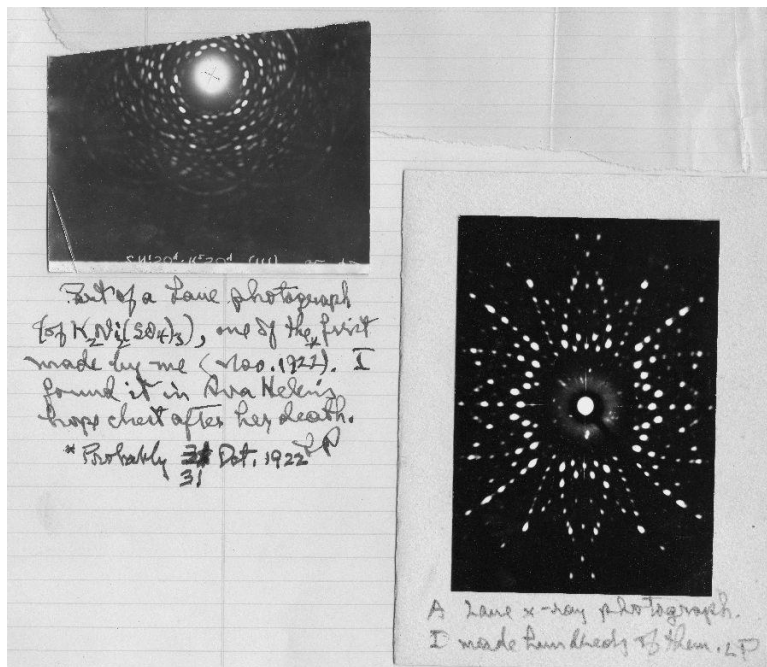 2NiSO4·K2SO4 (111)
Part of a Laue photograph
(of K2Ni2(SO4)3), one of the* first
made by me (Nov. 1922). I
found it in Ava Helen's
hope chest after her death.
LP
* Probably 31 Oct. 1922
A Laue x-ray photograph.
I made hundreds of them. LP